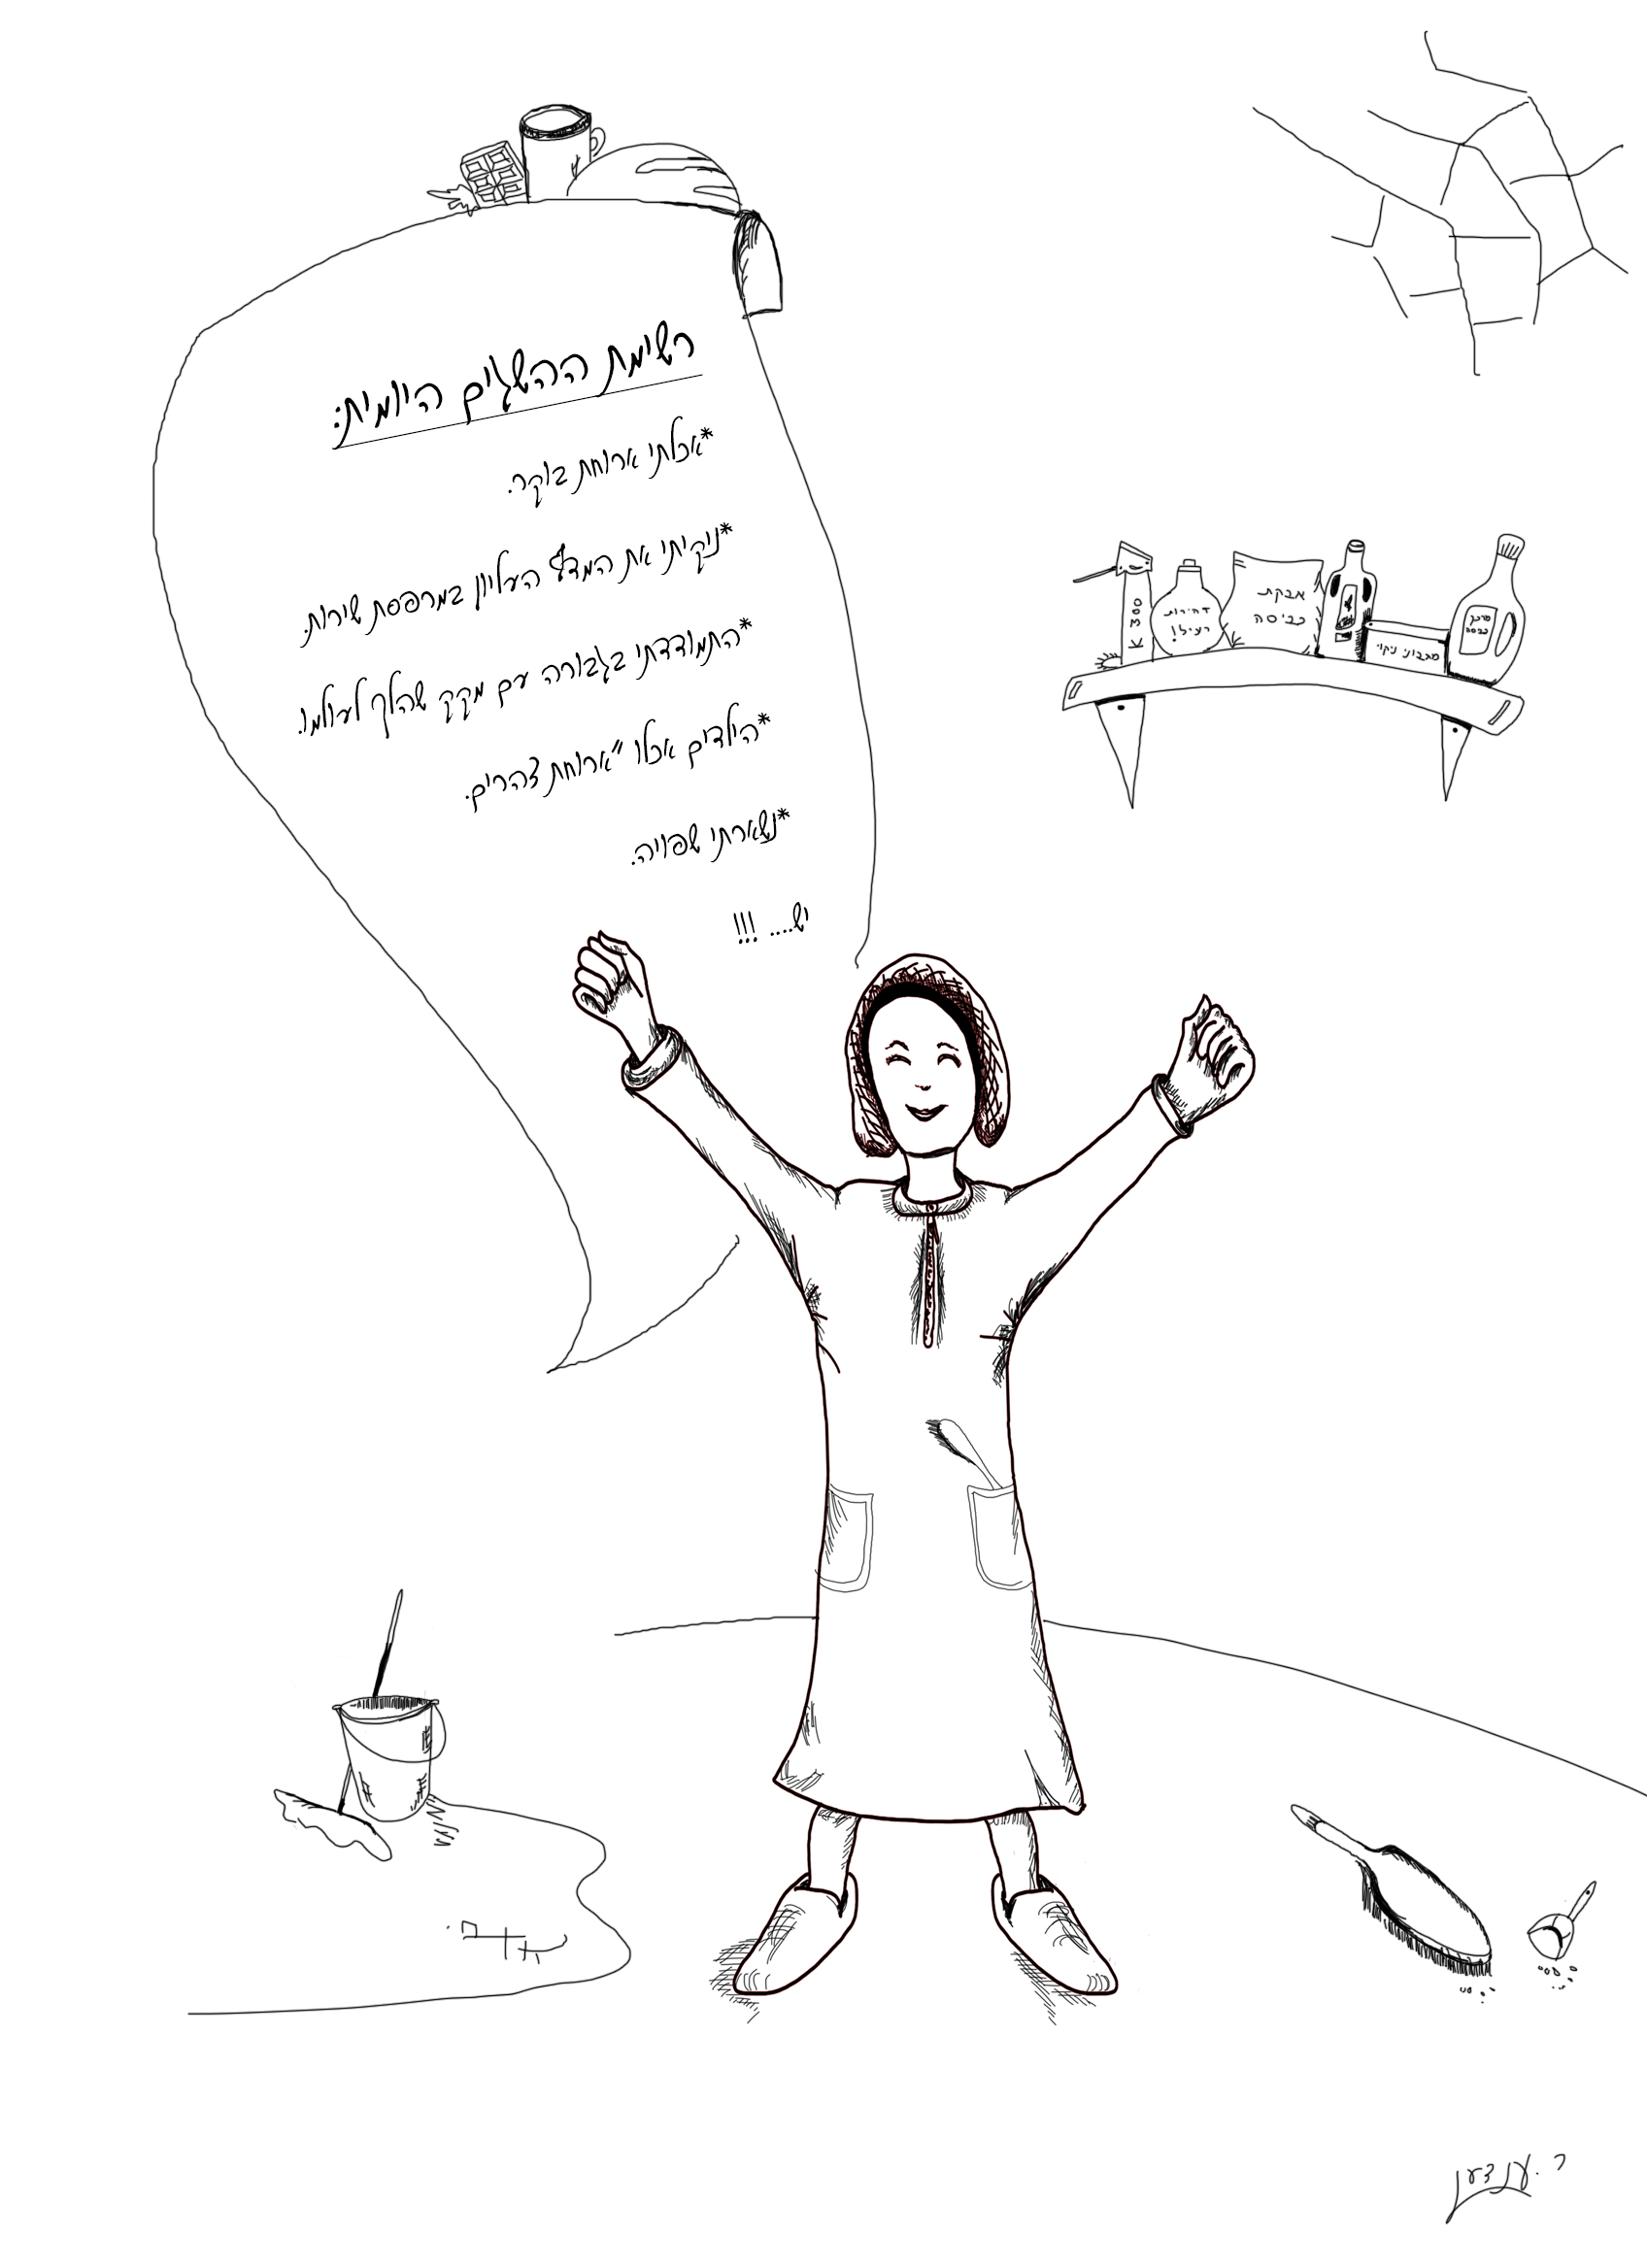 רשימת ההשגים היומית:
*אכלתי ארוחת בוקר.
*ניקיתי את המדף העליון במרפסת שירות.
*התמודדתי בגבורה עם מקק שהלך לעולמו.
*הילדים אכלו "ארוחת צהרים.
*נשארתי שפויה.
יש.... !!!
K 300
זהירות
רעיל!
אבקת
כביסה
מגבוני ניקוי
מרכך
כביסה